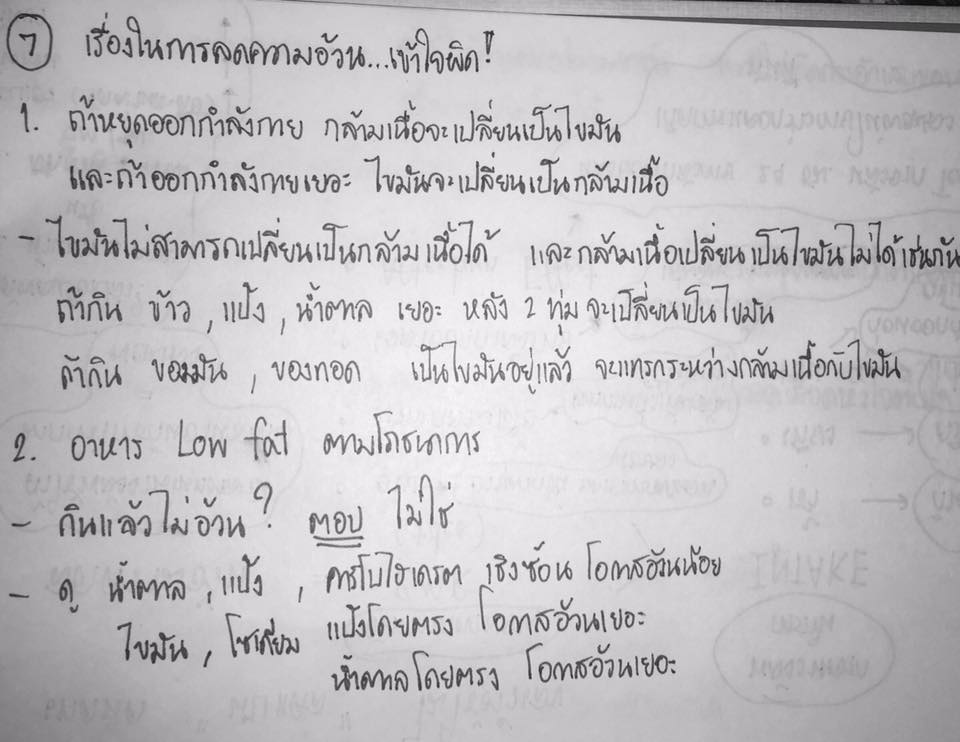 7 เรื่องในการลดความอ้วน...เข้าใจผิด!!
1. ถ้าหยุดออกกำลังกาย กล้ามเนื้อจะเปลี่ยนเป็นไขมัน
และถ้าออกกำลังกายเยอะ ไขมันจะเปลี่ยนเป็นกล้ามเนื้อ
- ไขมันไม่สามารถเปลี่ยนเป็นกล้ามเนื้อได้ และกล้ามเนื้อเปลี่ยนเป็นไขมันไม่ได้เช่นกัน
ถ้ากิน ข้าว, แป้ง, น้ำตาล เยอะ หลัง 2 ทุ่มจะเปลี่ยนเป็นไขมัน
ถ้ากิน ของมัน, ของทอด เป็นไขมันอยู่แล้ว จะแทรกระหว่างกล้ามเนื้อกับไขมัน
2. อาหาร Low fat ตามโภชนาการ
- กินแล้วไม่อ้วน? ตอบ ไม่ใช่
- ดู น้ำตาล, แป้ง, คาร์โบไฮเดรต เชิงซ้อน โอกาสอ้วนน้อย
ไขมัน, โซเดียม แป้งโดยตรง โอกาสอ้วนเยอะ
น้ำตาลโดยตรง โอกาสอ้วนเยอะ